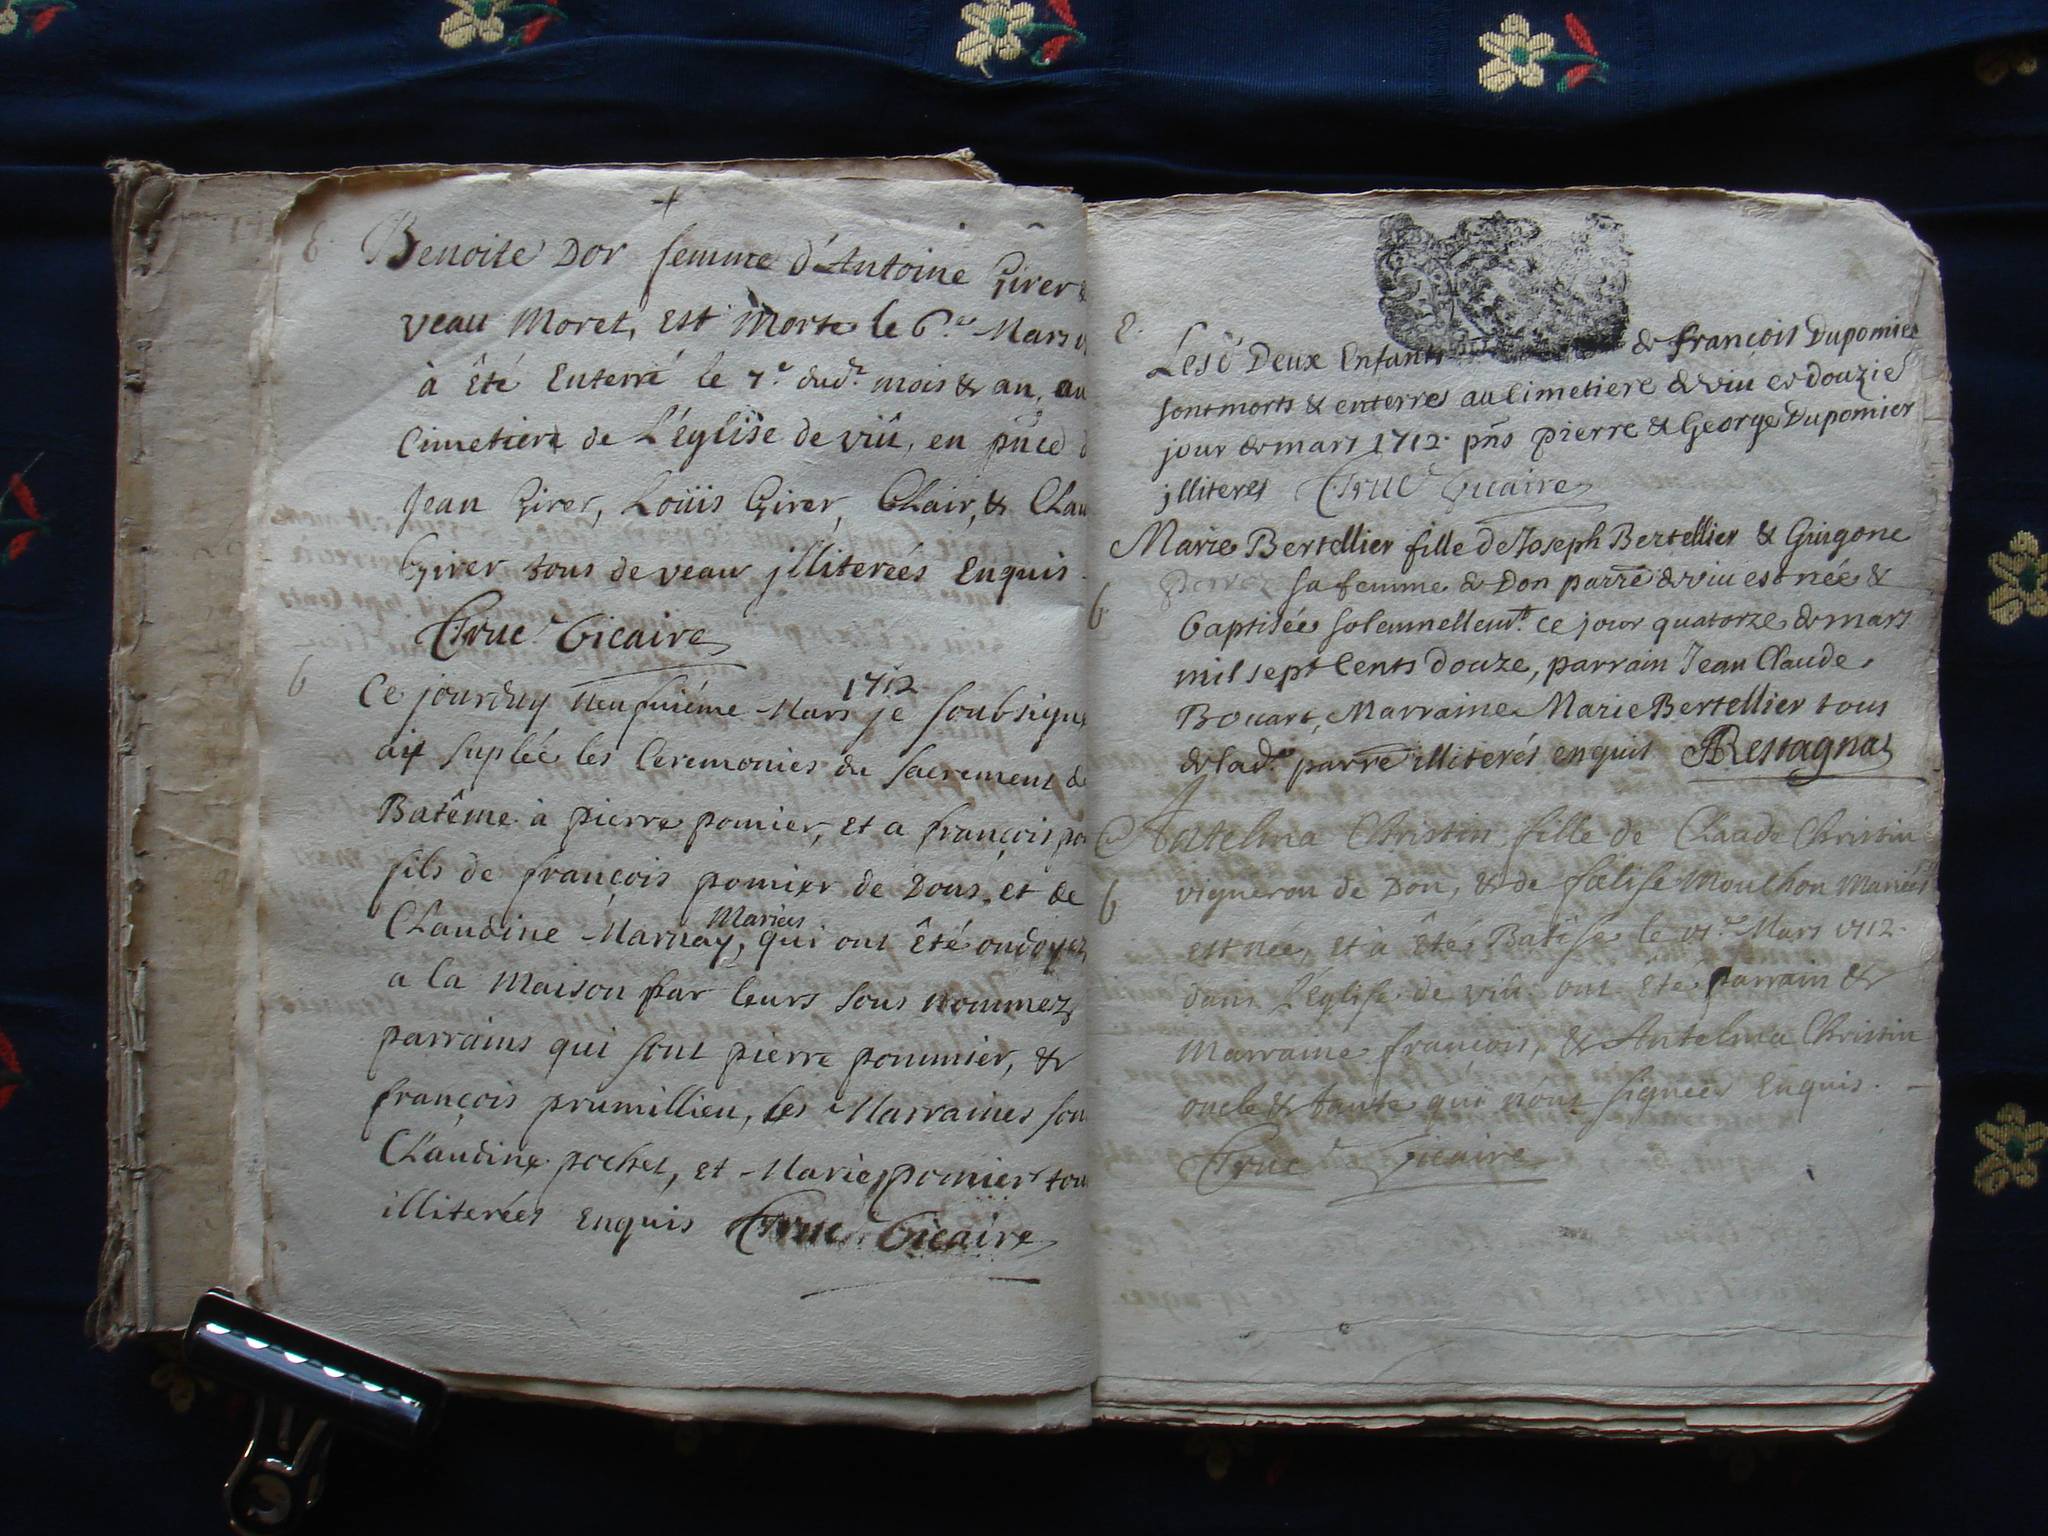 E.
Benoite Dor femme d'Antoine Girer &
veau Moret, est Morte le 6.e Mars
à été Enterré le 7.e dud.t mois & an, au
Cimetiere de L'église de viû, en pñce
Jean Girer, Loüis Girer, Clair, & Clau
Girer tous de veau jlliterées Enquis.
Truc Vicaire
6
Ce jourduy Neufuiéme Mars 1712 je soubsigne
aiy suplée les Ceremonies du sacrement de
Batême à pierre pomier, et a françois po
fils de françois pomier de Dons, et de
Claudine Marnay, Mariés qui ont été ondoyez
a la Maison par leurs sous nommez
parrains qui sont pierre pommier, &
françois prumillieu, les Marraines son
Claudine pochet, et Marie pomier tou
illiterées Enquis Truc Vicaire
E.
Lesd Deux Enfants de françois Dupomier
sont morts & enterres au Cimetiere de viu ce douzie
jour de mars 1712. pñs pierre & George Dupomier
jlliteres Truc Vicaire
Marie Bertellier fille de Joseph Bertellier & Guigone
sa femme de Don parre de viu est née &
6
Baptisée solemnellemt. ce jour quatorze de mars
mil sept Cents douze, parrain Jean Claude
Bouart, Marraine Marie Bertellier tous
de lad.e parre illiterés enquis Restagnat
Antelma Christin fille de Claude Christin
6
vigneron de Don, & de foelise Mouchon Mariées
est née, et à été Batisée le Mars 1712.
dans l'église de viû: ont été parrain &
Marraine françois, & Antelma Christin
oncle & tante qui n'ont signées Enquis.
Truc Vicaire